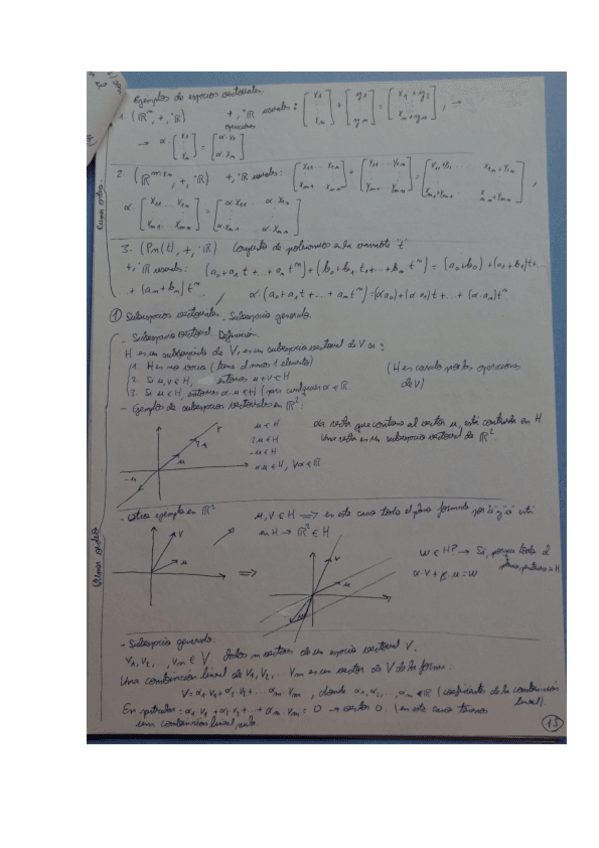 Ejemplos de espacios vectoriales.
1. (ℝ^m, +, ·ℝ) +, ·ℝ usuales: [x1 ⋮ xm] + [y1 ⋮ ym] = [x1+y1 ⋮ xm+ym], →
operaciones
→ α·[x1 ⋮ xm] = [α·x1 ⋮ α·xm]
2. (ℝ^{m×n}, +, ·ℝ) +, ·ℝ usuales:
3. (Pm(t), +, ·ℝ) Conjunto de polinomios en la variable "t"
+, ·ℝ usuales: (a0+a1t+...+am t^m)+(b0+b1t+...+bm t^m) = (a0+b0)+(a1+b1)t+
...+(am+bm)t^m, α·(a0+a1t+...+am t^m)=(α·a0)+(α·a1)t+...+(α·am)t^m
① Subespacios vectoriales. Subespacio generado.
- Subespacio vectorial. Definición.
H es un subconjunto de V, es un subespacio vectorial de V si:
1. H es no vacío (tiene al menos 1 elemento)
2. Si u,v ∈ H, entonces u+v ∈ H
3. Si u ∈ H, entonces α·u ∈ H (para cualquier α ∈ ℝ.
(H es cerrado por las operaciones
de V)
- Ejemplos de subespacios vectoriales en ℝ²:
r
2u
u
-u
u ∈ H
2u ∈ H
-u ∈ H
αu ∈ H, ∀α ∈ ℝ
La recta que contiene al vector u, está contenida en H
Una recta es un subespacio vectorial de ℝ².
- Otro ejemplo en ℝ²
u,v ∈ H ⟹ en este caso todo el plano formado por "u" y "v" está
en H → ℝ² ∈ H
v
u
⟹
v
u
w
w ∈ H? → Si, porque todo el
plano pertenece a H
α·v+β·u=w
- Subespacio generado:
v1, v2, ..., vm ∈ V dados m vectores de un espacio vectorial V.
Una combinación lineal de v1, v2, ... vm es un vector de V de la forma:
V=α1·v1+α2·v2+...αm·vm, donde α1, α2, ..., αm ∈ ℝ (coeficientes de la combinación
lineal).
En particular: α1·v1+α2·v2+...+αm·vm=0 → vector 0. (en este caso tenemos
una combinación lineal nula
15